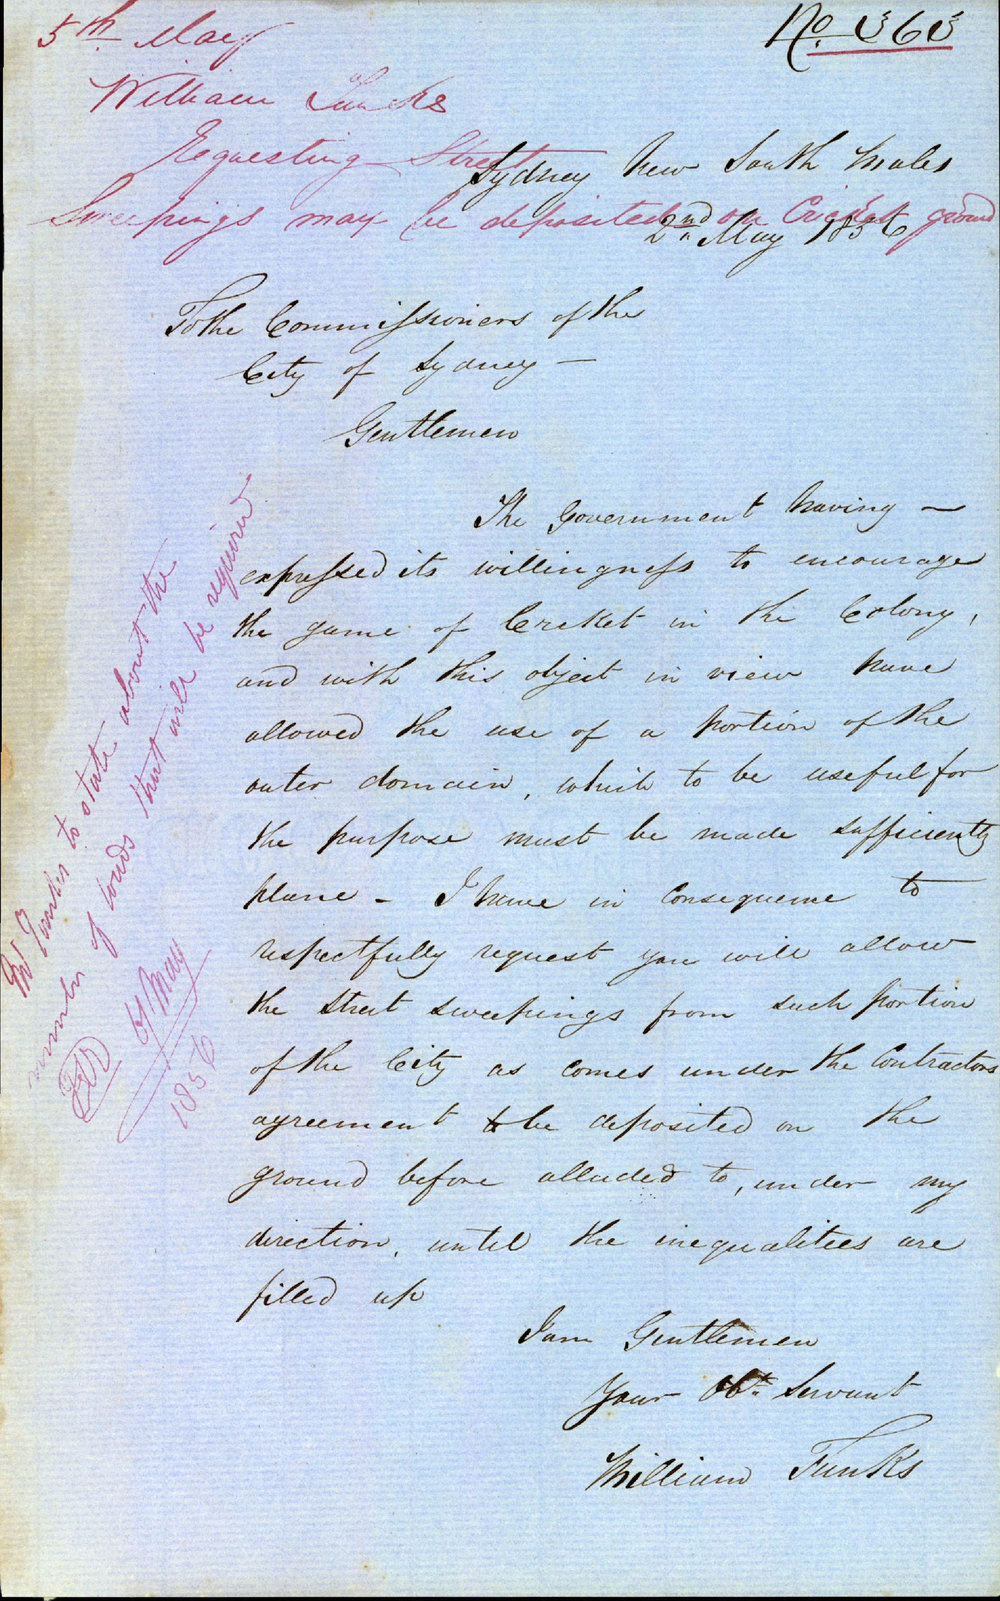 5th May
No. 363
William Tunks
Requesting Street
Sweepings may be deposited on Cricket ground
Sydney New South Wales
2nd May 1856
To the Commissioners of the
City of Sydney —
Gentlemen
The Government having —
expressed its willingness to encourage
the game of Cricket in the Colony,
and with this object in view have
allowed the use of a portion of the
outer domain, which to be useful for
the purpose must be made sufficiently
plane - I have in consequence to
respectfully request you will allow
the Street sweepings from such portion
of the City as comes under the Contractors
agreement to be deposited on the
ground before alluded to, under my
direction, until the inequalities are
filled up
I am Gentlemen
Your Obt. Servant
William Tunks
Mr Tunks to state about the
number of loads that will be required
May
1856